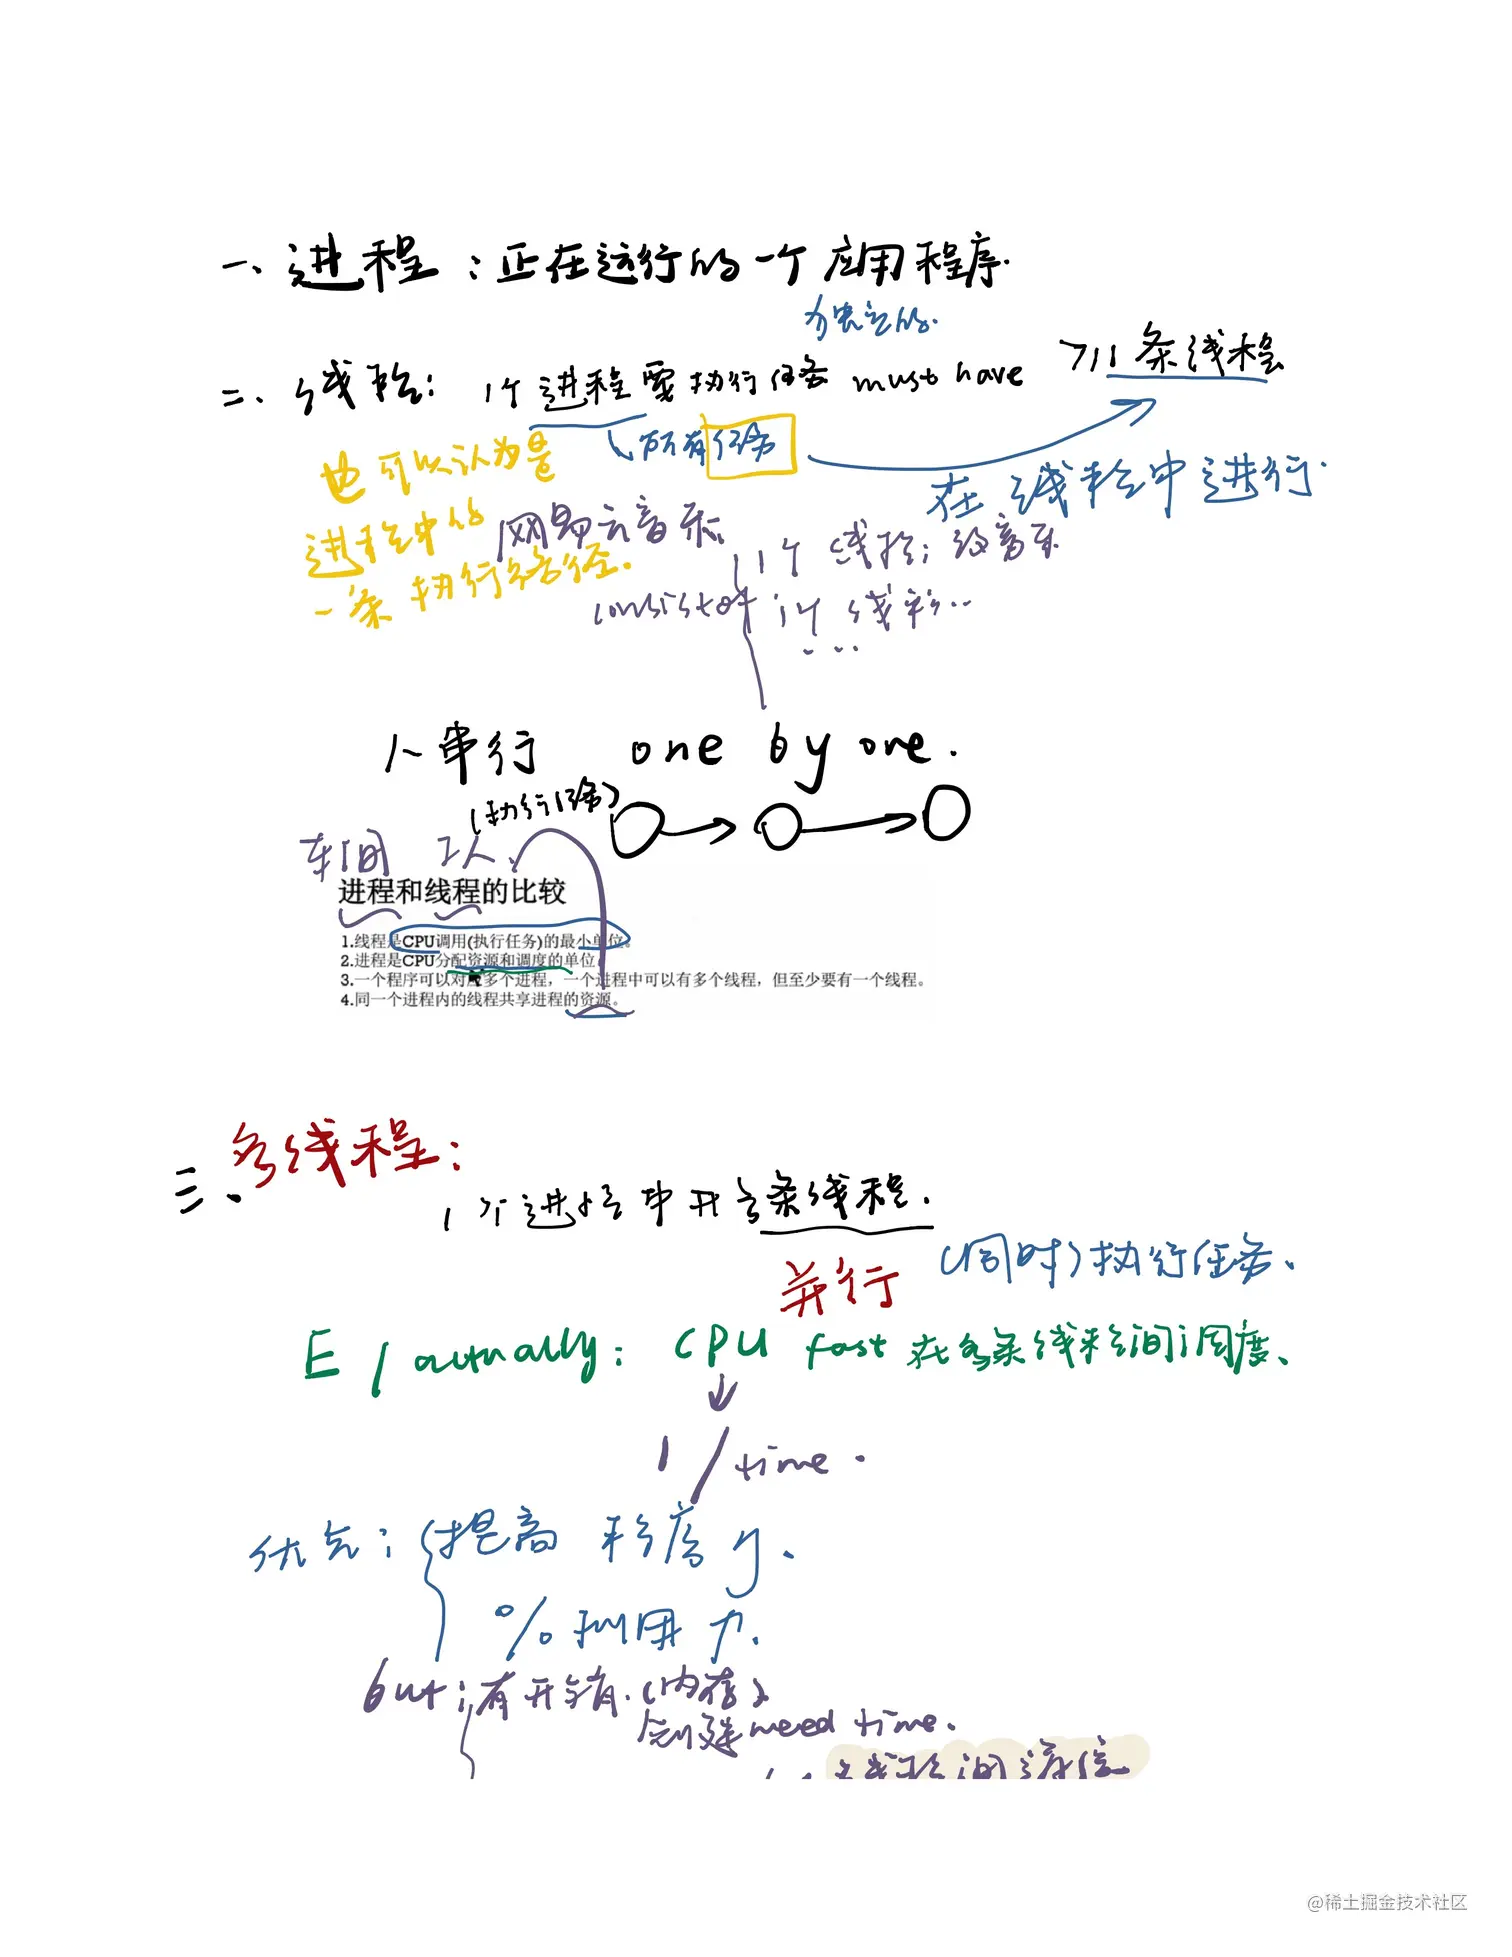 一、进程：正在运行的一个应用程序.
独立的.
二、线程：1个进程要执行任务 must have >,1条线程
所有任务
在线程中进行.
也可以认为是
进程中的
一条执行路径.
网易云音乐
1个线程：放音乐
consist of 1个线程...
...
1、串行 one by one.
(执行任务)
车间 工人
进程和线程的比较
1.线程是CPU调用(执行任务)的最小单位。
2.进程是CPU分配资源和调度的单位。
3.一个程序可以对应多个进程，一个进程中可以有多个线程，但至少要有一个线程。
4.同一个进程内的线程共享进程的资源。
三、多线程：
1个进程中开多条线程.
并行 (同时)执行任务、
E / actually: CPU fast 在多条线程间调度、
1 / time.
优点：提高 程序
%利用
but：有开销.(内存)
创建 need time.
线程间通信
@稀土掘金技术社区